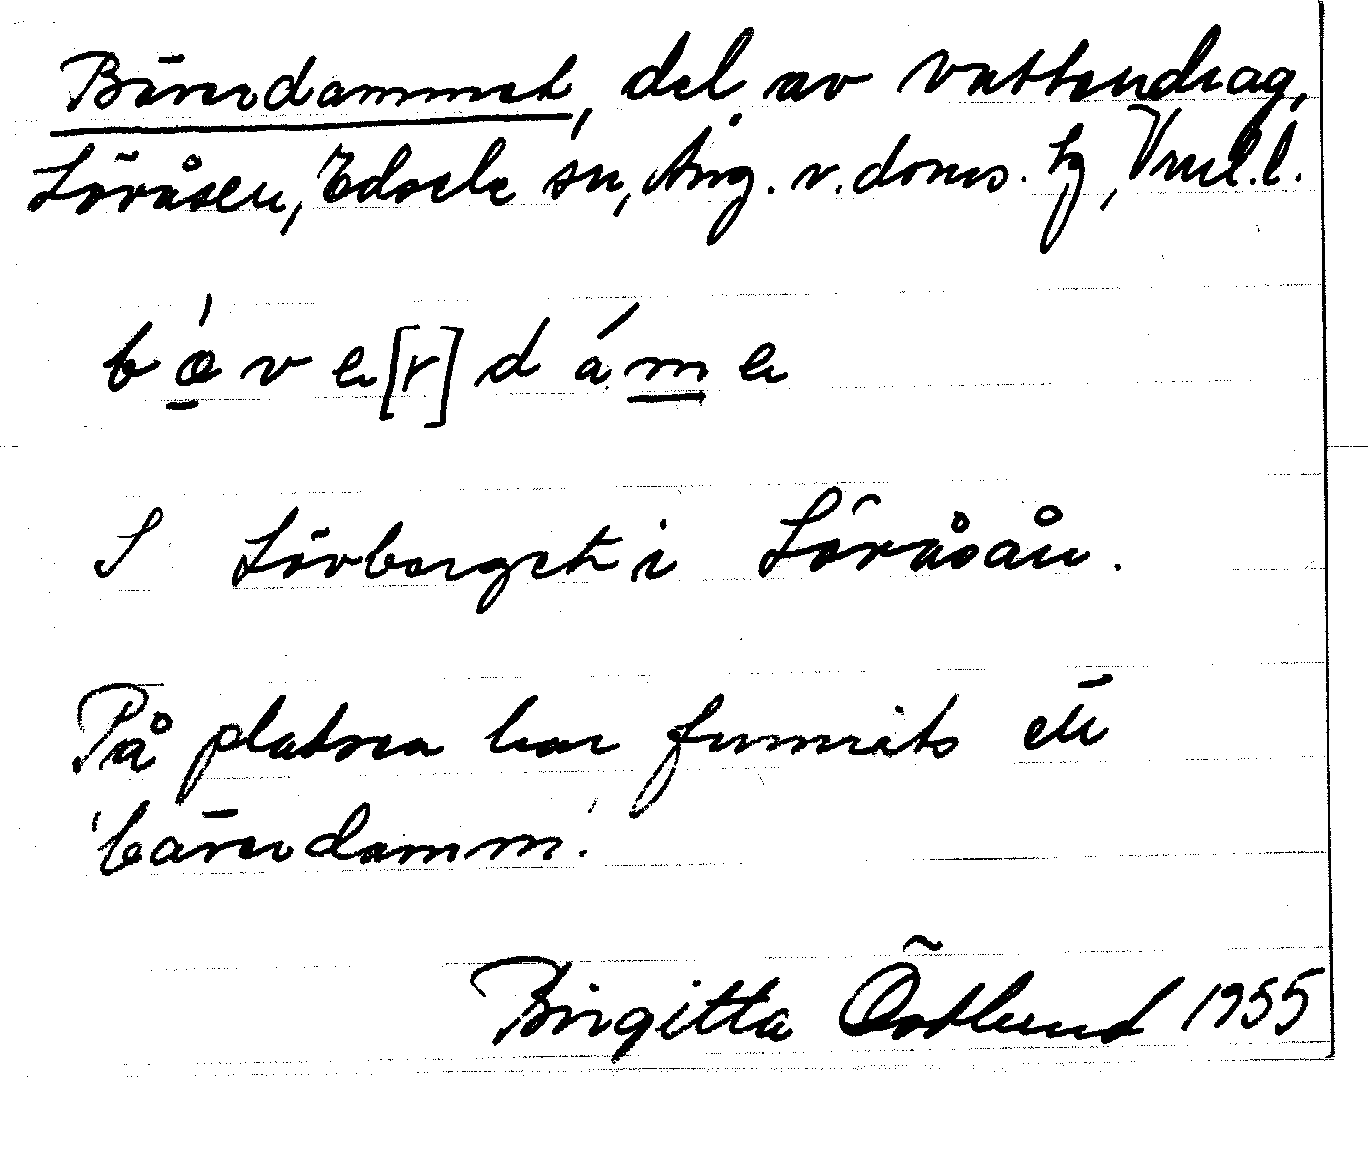 Bäverdammet, del av vattendrag,
Lövåsen, Edsele sn, Ång. v. doms.
b æ v e [r] d a m e
I Lövberget i Lövåsån.
På platsen har funnits en
'bäverdamm'.
Birgitta Östlund 1955